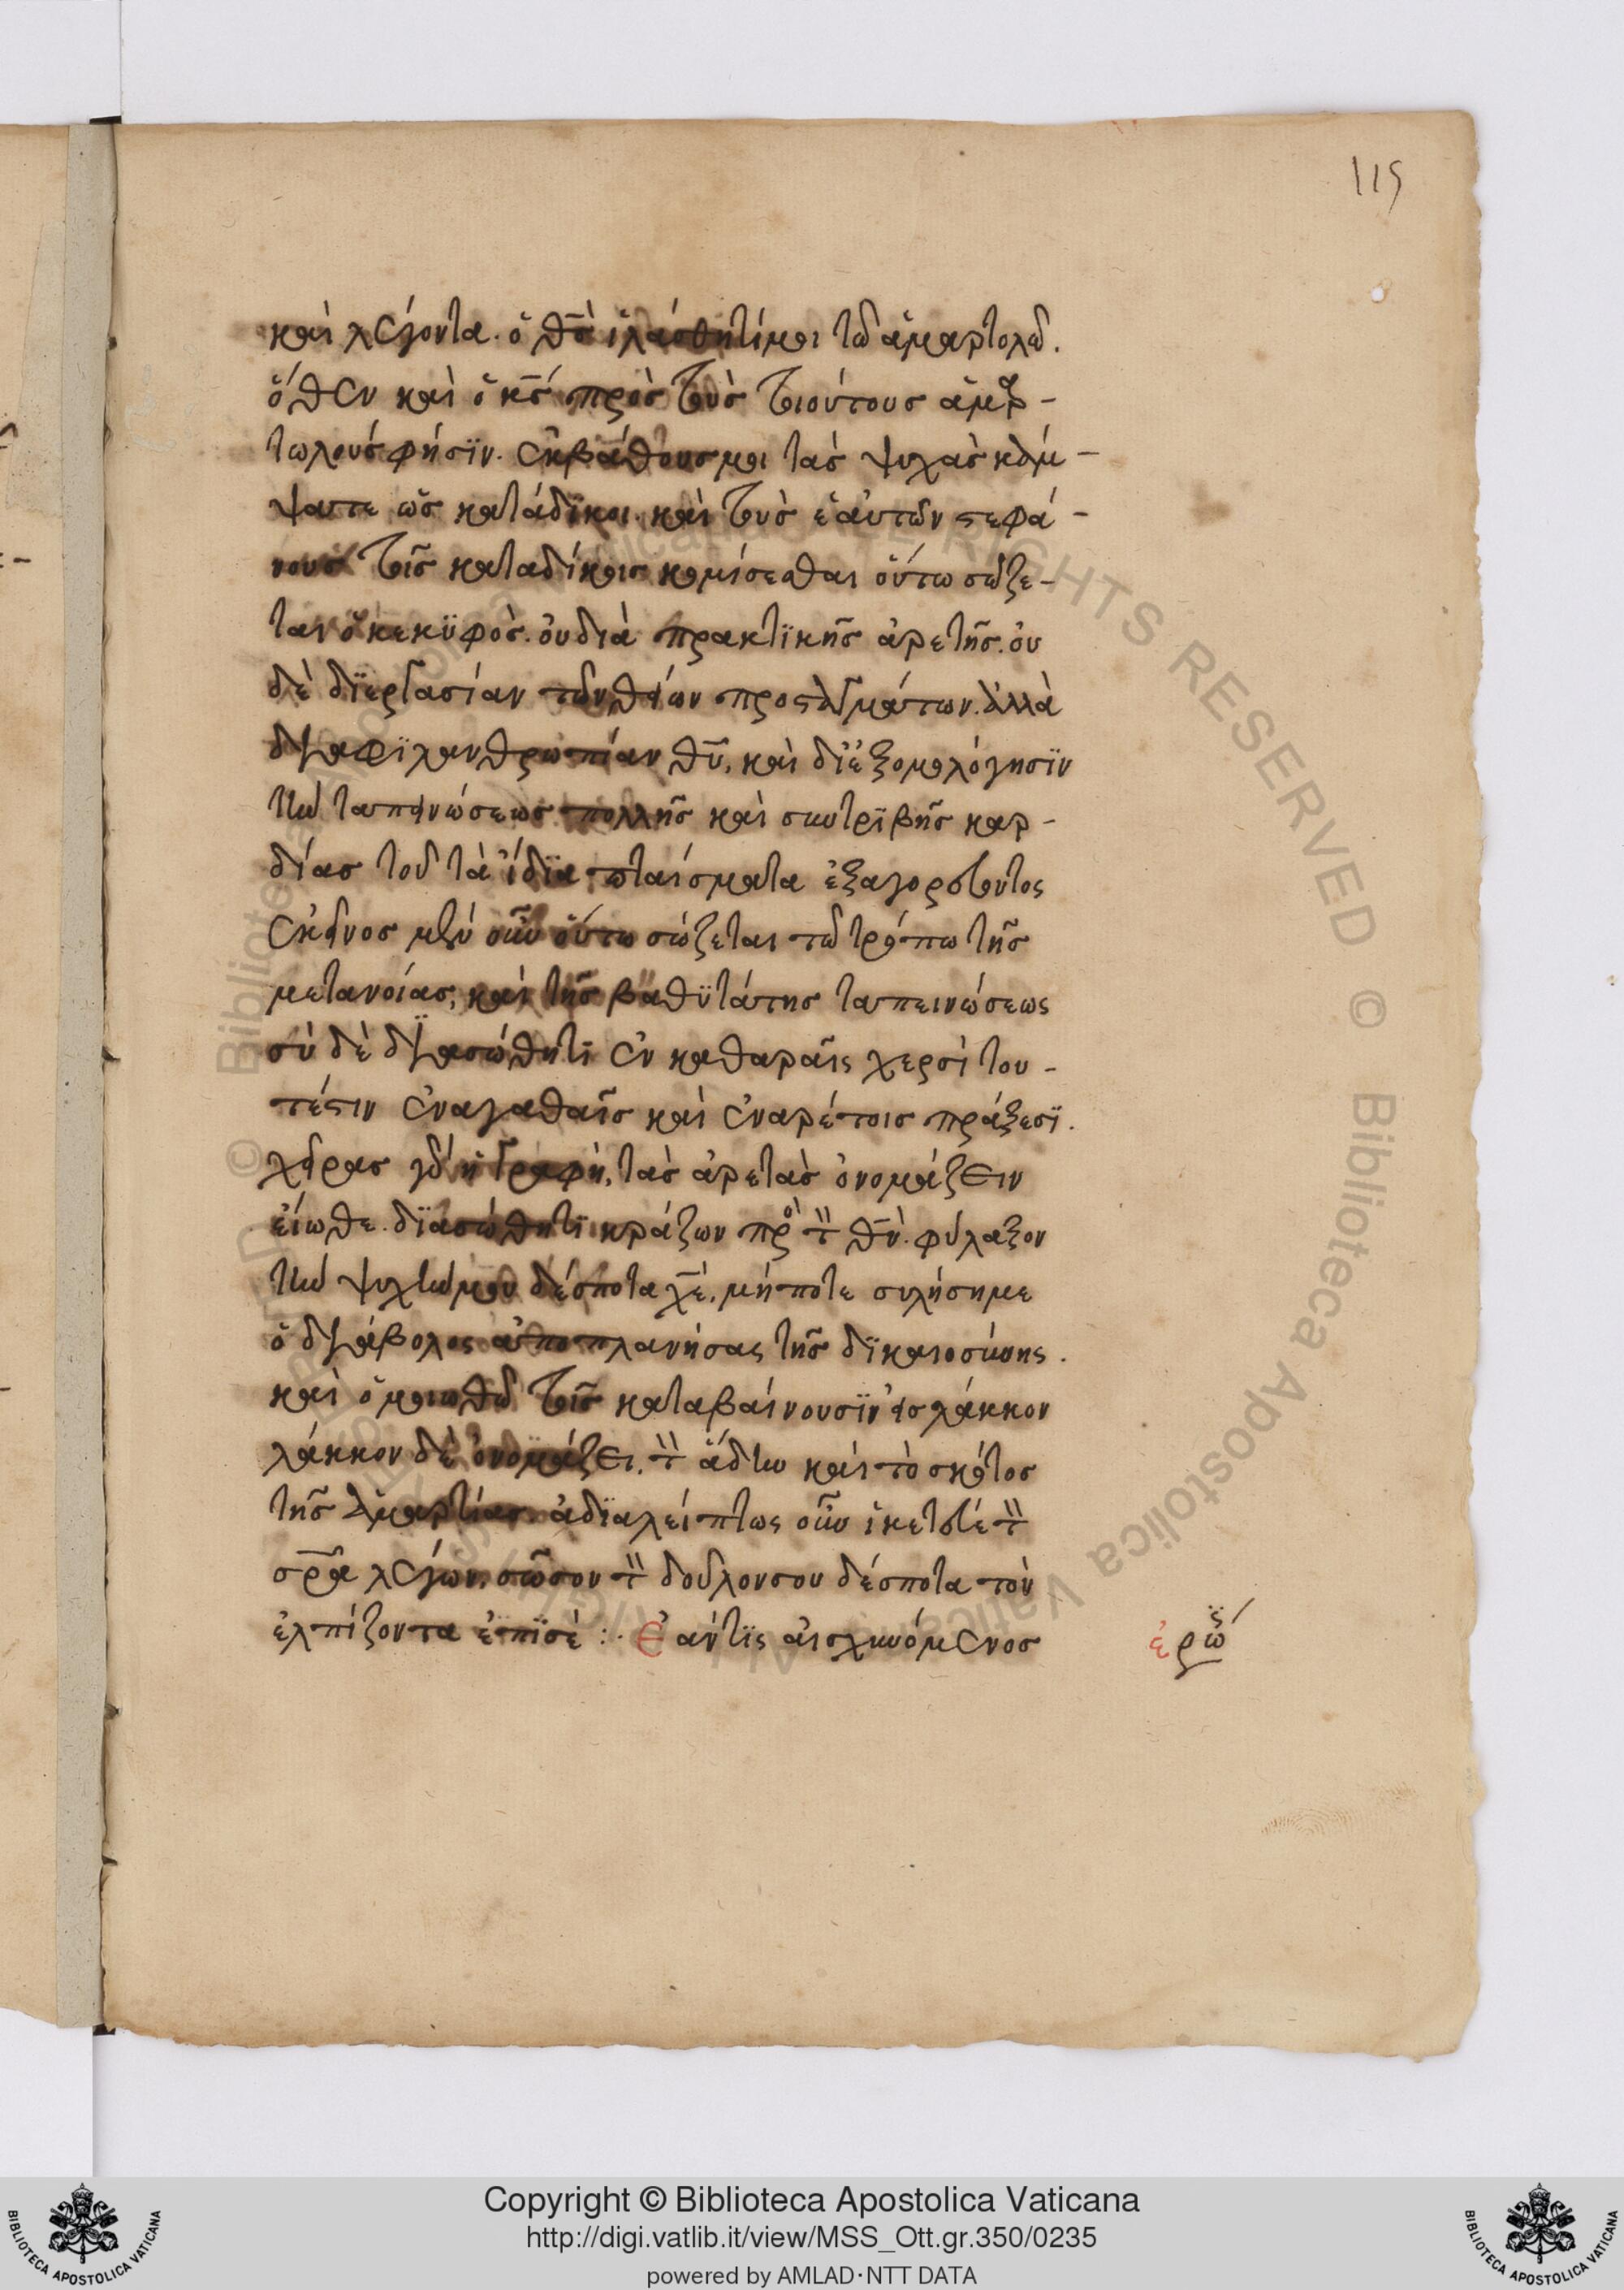 115
καὶ λέγοντα. ὁ θς̅ ἱλάσθητί μοι τῶ ἁμαρτολῶ.
ὅθεν καὶ ὁ κς̅ πρὸς τοὺς τοιούτους ἁμαρ-
τωλούς φησϊν. ἐκβάθους μοι τὰς ψυχὰς κάμ-
ψατε ὡς κατάδϊκοι. καὶ τοὺς ἑαυτῶν στεφά-
νους τοῖς καταδίκοις κομίσεσθαι οὕτω σώζε-
ται ὁ κεκϋφὸς. οὐ διὰ πρακτϊκῆς ἀρετῆς. οὐ
δὲ δϊεργασίαν τῶν θείων προσταγμάτων. ἀλλὰ
διαφϊλανθρωπίαν θυ̅, καὶ δϊἐξομολόγησϊν
τὴν ταπεινώσεως πολλῆς καὶ συντρϊβῆς καρ-
δίας τοῦ τὰ ἴδϊα πταίσματα ἐξαγορεύοντος
ἐκεῖνος μὲν οὖν οὕτω σώζεται τῶ τρόπω τῆς
μετανοίας, καὶ τῆς βαθϋτάτης ταπεινώσεως
σὺ δὲ διασώθητϊ ἐν καθαραῖς χερσὶ του-
τέστιν ἐναγαθαῖς καὶ ἐναρέτοις πράξεσϊ.
χεῖρας γὰρ ἡ γραφὴ, τὰς ἀρετὰς ὀνομάζειν
εἴωθε. δϊασώθητϊ κράζων πρὸς τὸν θν̅. φύλαξον
τὴν ψυχήν μου δέσποτα χε̅, μήποτε συλήσημε
ὁ διάβολος ἀποπλανήσας τῆς δϊκαιοσύνης.
καὶ ὁμοιωθῶ τοῖς καταβαίνουσϊν εἰς λάκκον
λάκκον δὲ ὀνομάζει, τὸν ἅδην καὶ τὸ σκότος
τῆς ἁμαρτίας. ἀδϊαλείπτως οὖν ἱκετεύε τὸν
σρ̅α λέγων, σῶσον τὸν δοῦλονσου δέσποτα τὸν
ἐλπίζοντα ἐπϊσὲ :. Ἐαν τϊς αἰσχυνόμενος
ἐρώ
Copyright © Biblioteca Apostolica Vaticana
http://digi.vatlib.it/view/MSS_Ott.gr.350/0235
powered by AMLAD·NTT DATA